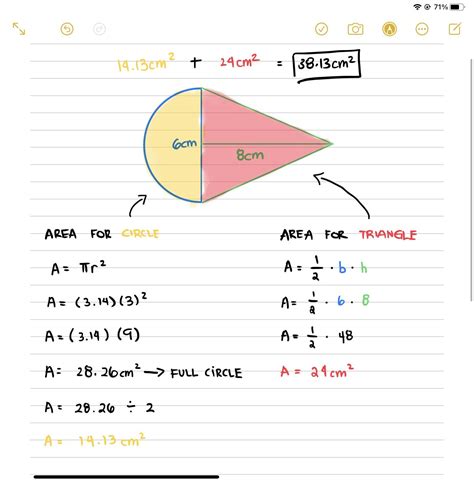 71%
14.13cm² + 24cm² = 38.13cm²
6cm
8cm
AREA FOR CIRCLE
A = πr²
A = (3.14)(3)²
A = (3.14) (9)
A = 28.26cm² → FULL CIRCLE
A = 28.26 ÷ 2
A = 14.13 cm²
AREA FOR TRIANGLE
A = 1/2 · b · h
A = 1/2 · 6 · 8
A = 1/2 · 48
A = 24cm²